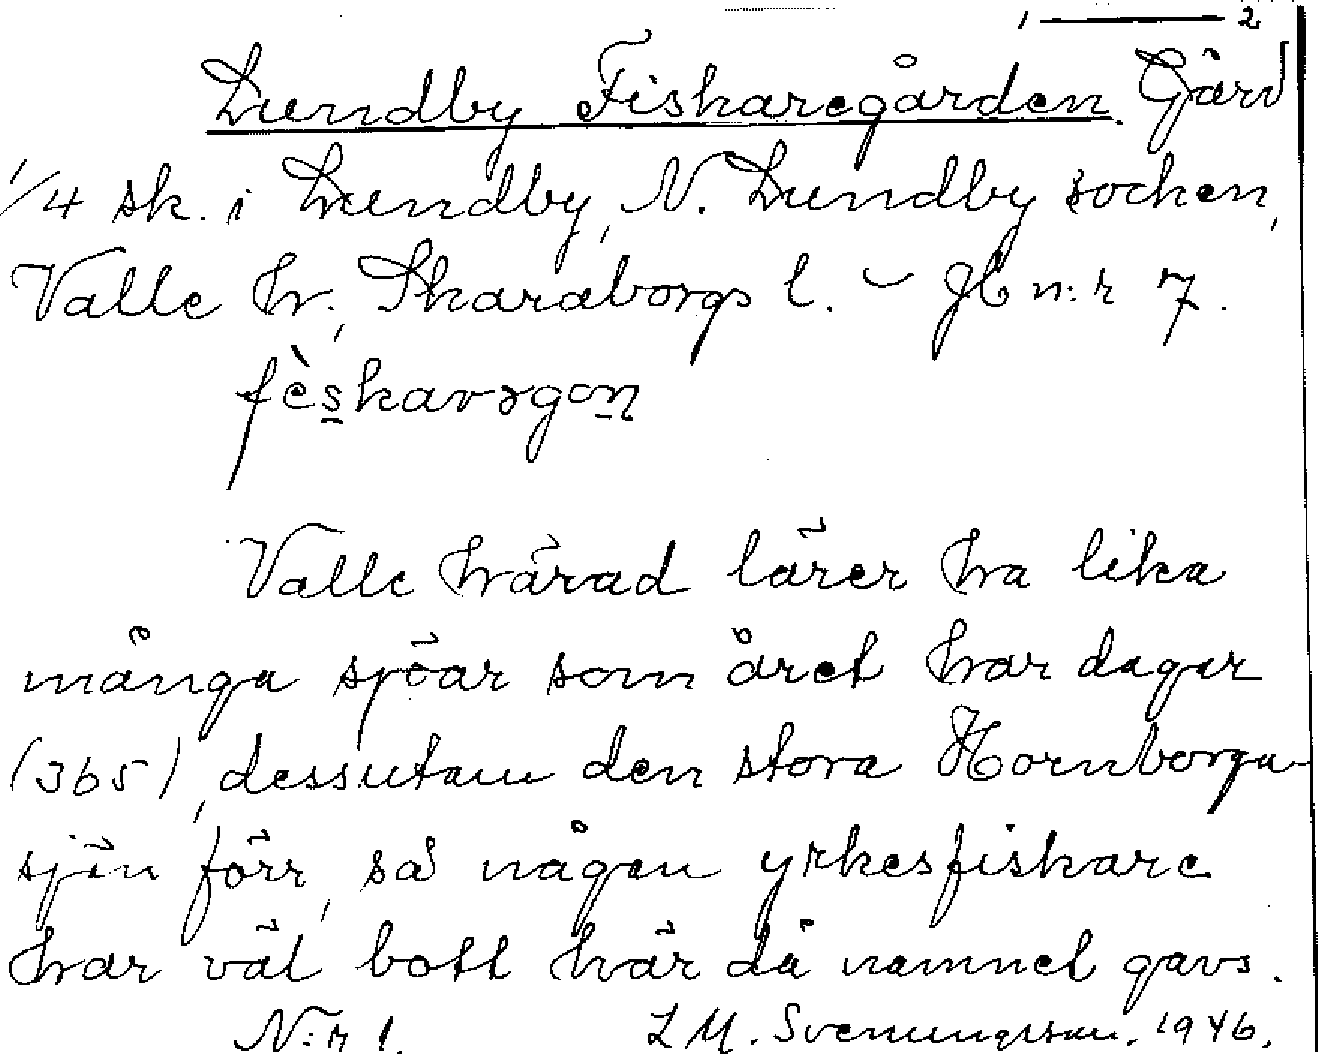 1 — 2
Lundby Fiskaregården. Gård
1/4 sk. i Lundby, N. Lundby socken,
Valle hr., Skaraborgs l. – jb n:r 7.
fèskavrgon
Valle härad lärer ha lika
många sjöar som året har dagar
(365), dessutom den stora Hornborga-
sjön förr, så någon yrkesfiskare
har väl bott här då namnet gavs.
N:r 1. L M. Svenungsson. 1946.